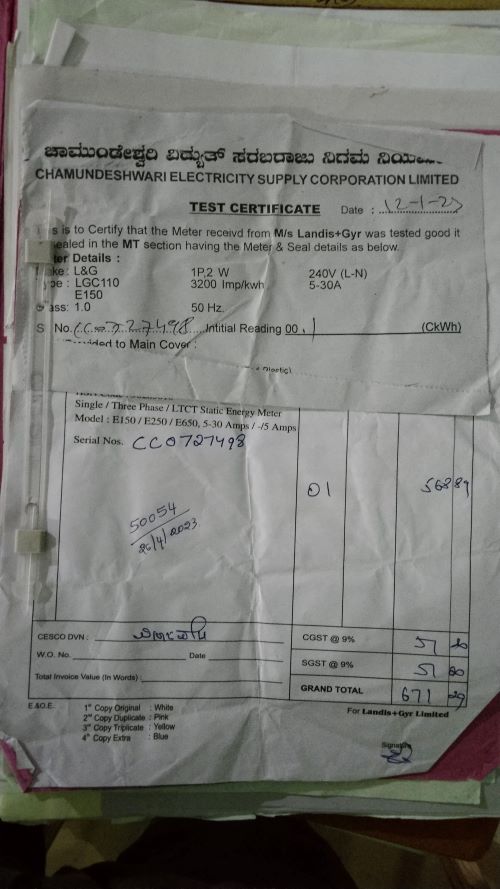 ಚಾಮುಂಡೇಶ್ವರಿ ವಿದ್ಯುತ್ ಸರಬರಾಜು ನಿಗಮ
CHAMUNDESHWARI ELECTRICITY SUPPLY CORPORATION LIMITED
TEST CERTIFICATE Date : 12-1-23
s is to Certify that the Meter receivd from M/s Landis+Gyr was tested good it
ealed in the MT section having the Meter & Seal details as below.
ter Details :
ke : L&G 1P,2 W 240V (L-N)
pe : LGC110 3200 Imp/kwh 5-30A
E150
ass: 1.0 50 Hz.
S No. CC0727498 Intitial Reading 00.1 (CkWh)
to Main Cover :
Single / Three Phase / LTCT Static Energy Meter
Model : E150 / E250 / E650, 5-30 Amps / -/5 Amps
Serial Nos. CC0727498
01 56889
50054
26/4/2023
CESCO DVN : CGST @ 9% 51 20
W.O. No. Date SGST @ 9% 51 20
Total Invoice Value (In Words) GRAND TOTAL 671 29
E.&O.E. 1st Copy Original : White For Landis+Gyr Limited
2nd Copy Duplicate : Pink
3rd Copy Triplicate : Yellow
4th Copy Extra : Blue
Signature